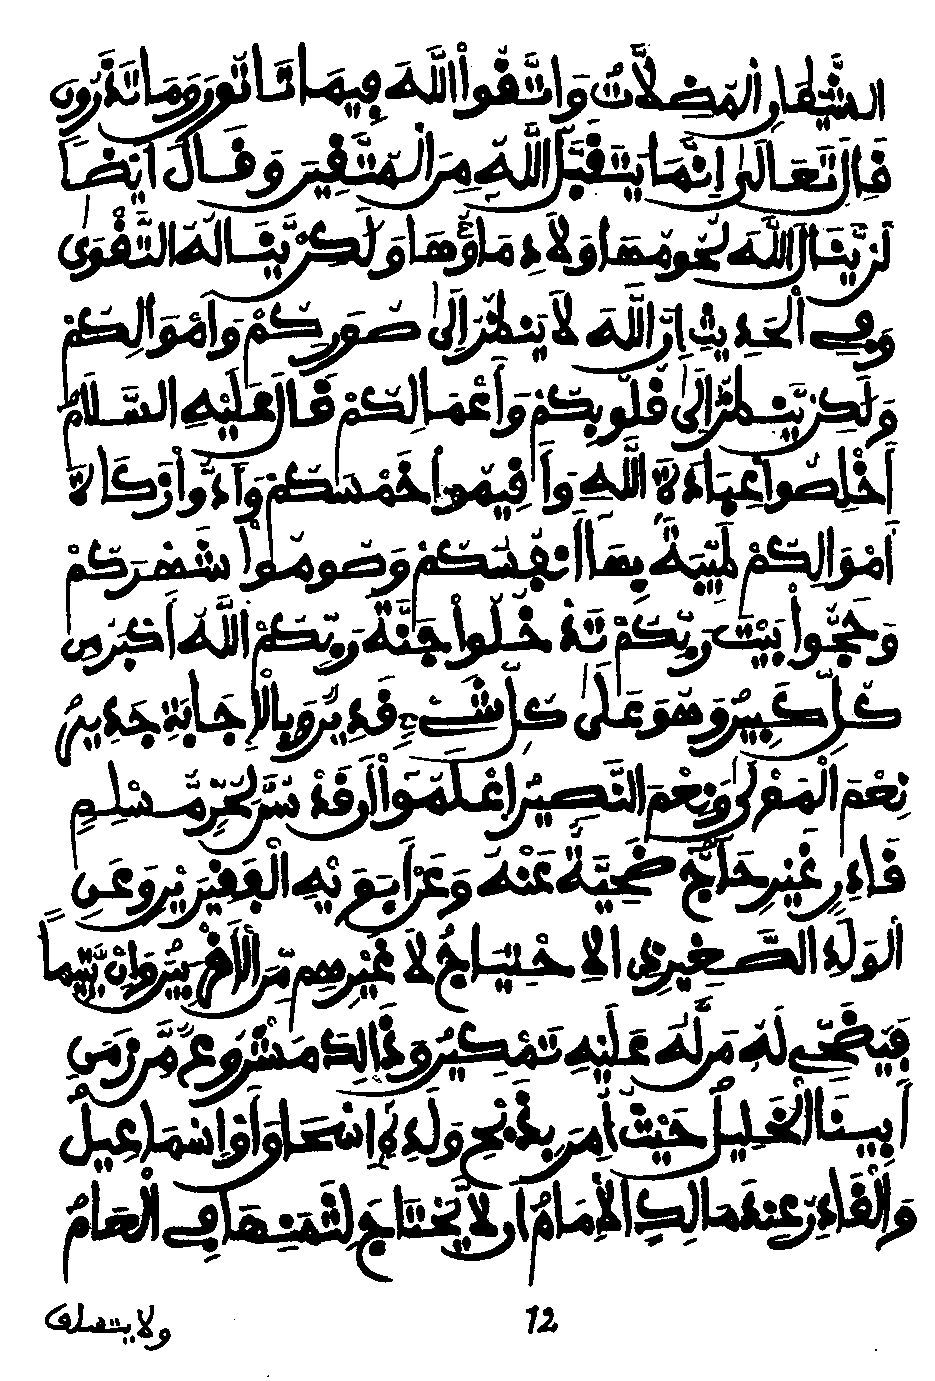 الشَّيْطَانِ الْمُضِلَّاتُ وَاتَّقُوا اللَّهَ فِيمَا تَاتُونَ وَمَا تَذَرُونَ
قَالَ تَعَالَى إِنَّمَا يَتَقَبَّلُ اللَّهُ مِنَ الْمُتَّقِينَ وَقَالَ أَيْضًا
لَنْ يَّنَالَ اللَّهَ لُحُومُهَا وَلَا دِمَاؤُهَا وَلَكِنْ يَّنَالُهُ التَّقْوَى
وَفِي الْحَدِيثِ إِنَّ اللَّهَ لَا يَنْظُرُ إِلَى صُوَرِكُمْ وَأَمْوَالِكُمْ
وَلَكِنْ يَّنْظُرُ إِلَى قُلُوبِكُمْ وَأَعْمَالِكُمْ قَالَ عَلَيْهِ السَّلَامُ
أَخْلِصُوا عِبَادَةَ اللَّهِ وَأَقِيمُوا خَمْسَكُمْ وَأَدُّوا زَكَاةَ
أَمْوَالِكُمْ طَيِّبَةً بِهَا أَنْفُسُكُمْ وَصُومُوا شَهْرَكُمْ
وَحُجُّوا بَيْتَ رَبِّكُمْ تَدْخُلُوا جَنَّةَ رَبِّكُمْ اللَّهُ أَكْبَرُ مِنْ
كُلِّ كَبِيرٍ وَهُوَ عَلَى كُلِّ شَيْءٍ قَدِيرٌ وَبِالْإِجَابَةِ جَدِيرٌ
نِعْمَ الْمَوْلَى وَنِعْمَ النَّصِيرُ اعْلَمُوا أَنْ قَدْ سُنَّ لِحُرٍّ مُّسْلِمٍ
قَادِرٍ غَيْرِ حَاجٍّ ضَحِيَّةٌ عَنْهُ وَعَنْ أَبَوَيْهِ الْفَقِيرَيْنِ وَعَنِ
الْوَلَدِ الصَّغِيرِ ذِي الِاحْتِيَاجِ لَا غَيْرِهِمْ مِّنَ الْأَقْرَبِينَ وَإِنْ يَّتِيمًا
فَيُضَحِّي لَهُ مَنْ لَهُ عَلَيْهِ تَمْكِينٌ وَذَالِكَ مَشْرُوعٌ مِّنْ زَمَنِ
أَبِينَا الْخَلِيلِ حَيْثُ أُمِرَ بِذَبْحِ وَلَدِهِ إِسْحَاقَ أَوْ إِسْمَاعِيلَ
وَالْقَادِرُ عِنْدَ مَالِكٍ الْإِمَامُ أَنْ لَا يَحْتَاجَ لِثَمَنِهَا فِي الْعَامِ
12
ولا يتصدق